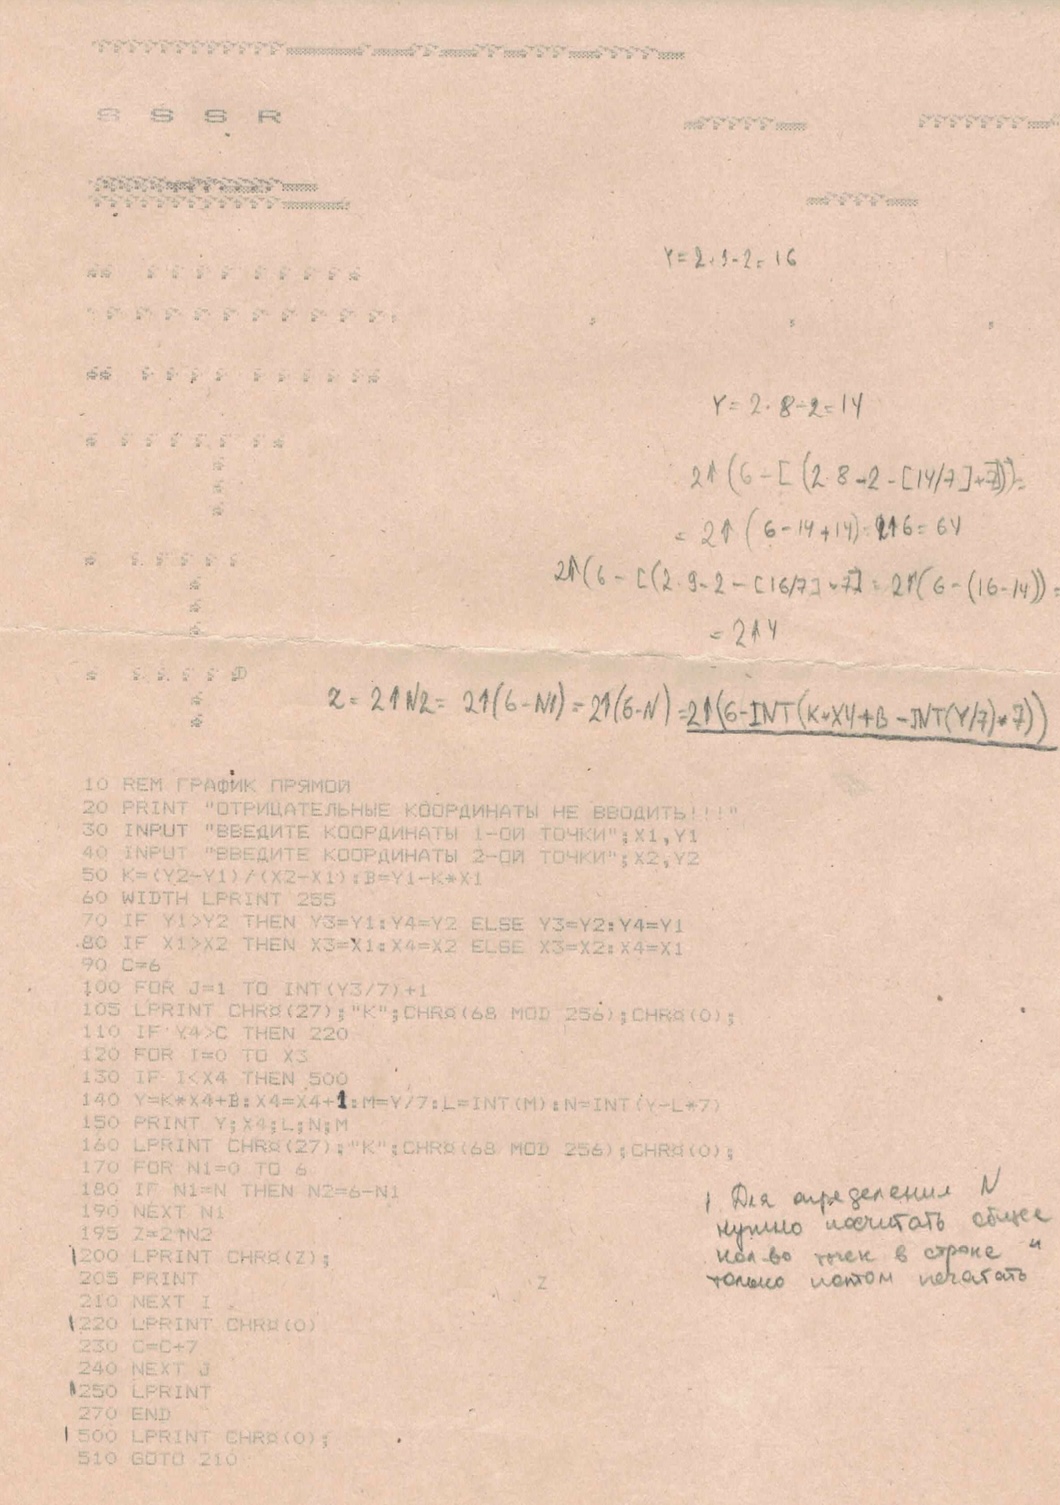 S S S R
Y=2·9-2=16
Y=2·8-2=14
2↑(6-[(2·8-2-[14/7]*7])=
=2↑(6-14+14)=2↑6=64
2↑(6-[(2·9-2-[16/7]*7]=2↑(6-(16-14))=
=2↑4
Z=2↑N2=2↑(6-N1)=2↑(6-N)=2↑(6-INT(K*X4+B-INT(Y/7)*7))
10 REM ГРАФИК ПРЯМОЙ
20 PRINT "ОТРИЦАТЕЛЬНЫЕ КООРДИНАТЫ НЕ ВВОДИТЬ!!!"
30 INPUT "ВВЕДИТЕ КООРДИНАТЫ 1-ОЙ ТОЧКИ";X1,Y1
40 INPUT "ВВЕДИТЕ КООРДИНАТЫ 2-ОЙ ТОЧКИ";X2,Y2
50 K=(Y2-Y1)/(X2-X1):B=Y1-K*X1
60 WIDTH LPRINT 255
70 IF Y1>Y2 THEN Y3=Y1:Y4=Y2 ELSE Y3=Y2:Y4=Y1
80 IF X1>X2 THEN X3=X1:X4=X2 ELSE X3=X2:X4=X1
90 C=6
100 FOR J=1 TO INT(Y3/7)+1
105 LPRINT CHR¤(27);"K";CHR¤(68 MOD 256);CHR¤(0);
110 IF Y4>C THEN 220
120 FOR I=0 TO X3
130 IF I<X4 THEN 500
140 Y=K*X4+B:X4=X4+1:M=Y/7:L=INT(M):N=INT(Y-L*7)
150 PRINT Y;X4;L;N;M
160 LPRINT CHR¤(27);"K";CHR¤(68 MOD 256);CHR¤(0);
170 FOR N1=0 TO 6
180 IF N1=N THEN N2=6-N1
190 NEXT N1
195 Z=2↑N2
200 LPRINT CHR¤(Z);
205 PRINT
Z
210 NEXT I
220 LPRINT CHR¤(0)
230 C=C+7
240 NEXT J
250 LPRINT
270 END
500 LPRINT CHR¤(0);
510 GOTO 210
! Для определения N
нужно посчитать общее
кол-во точек в строке и
только потом печатать